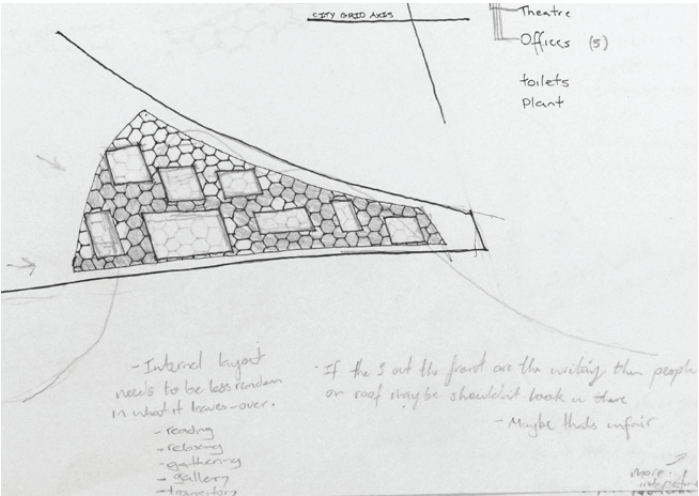 CITY GRID AXIS
Theatre
Offices (5)
toilets
Plant
- Internal layout
needs to be less random
in what it leaves over.
- reading
- relaxing
- gathering
- gallery
- transitory
- If the 3 out the front are the writing then people
on roof maybe shouldn't look in there
- Maybe thats unfair
more